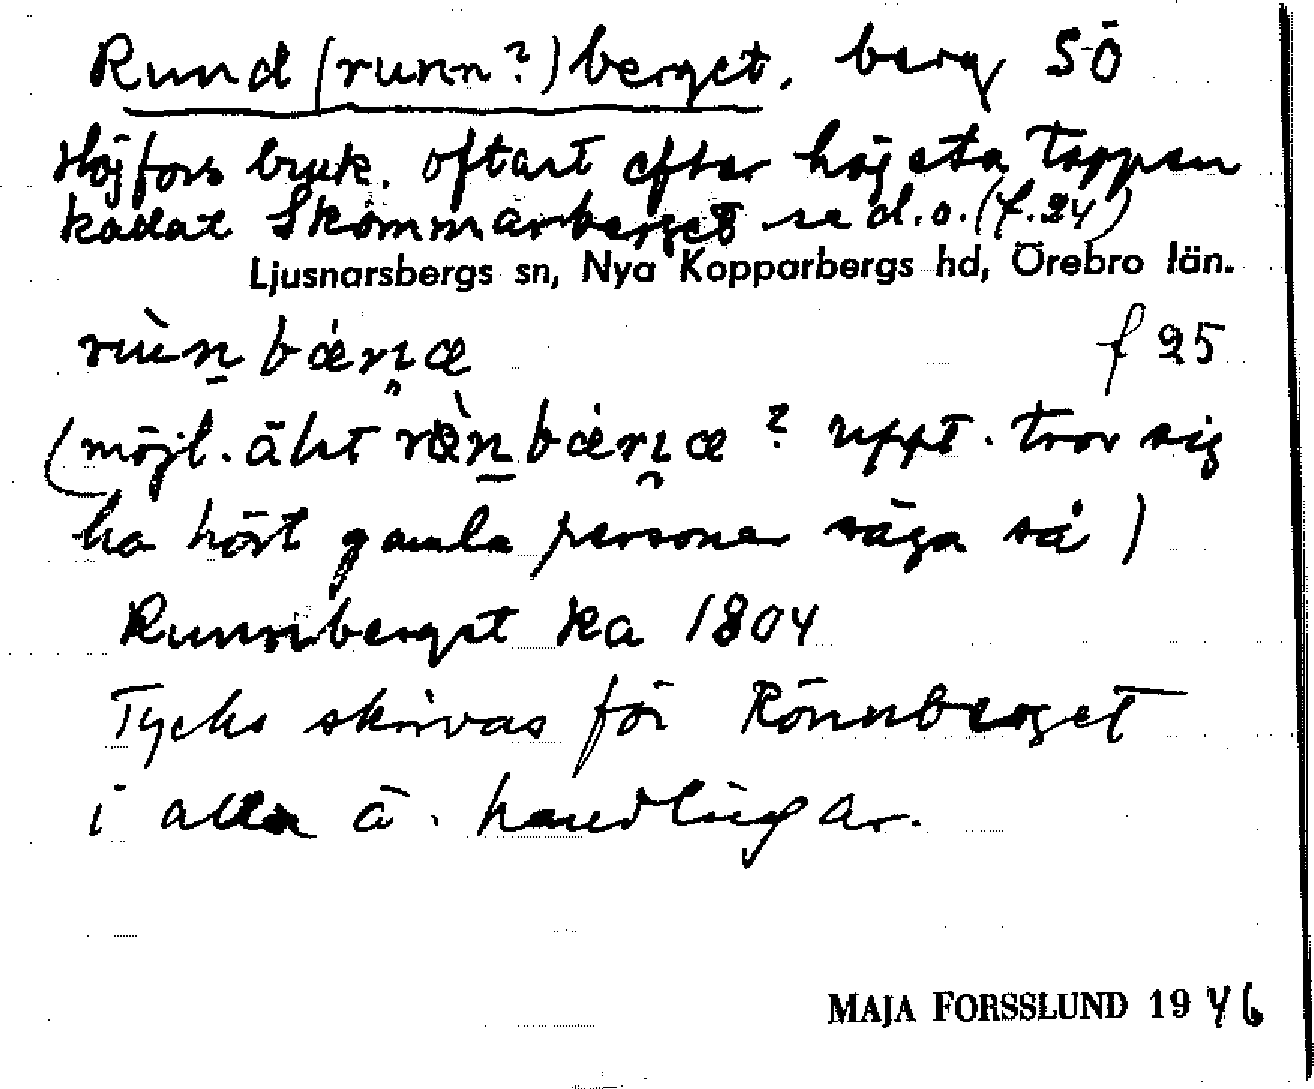 Rund (runn?) berget, berg SÖ
Höjfors bruk. oftast efter högsta toppen
kallat Skommarberget se d.o. (f. 24)
Ljusnarsbergs sn, Nya Kopparbergs hd, Örebro län.
rùn bǽrɳæ f 25
(möjl. äkt rœ̀n bǽrɳæ ? uppt. tror sig
ha hört gamla personer säga så)
Runnberget ka 1804
Tycks skrivas för Rönnberget
i alla ä. handlingar.
MAJA FORSSLUND 1946